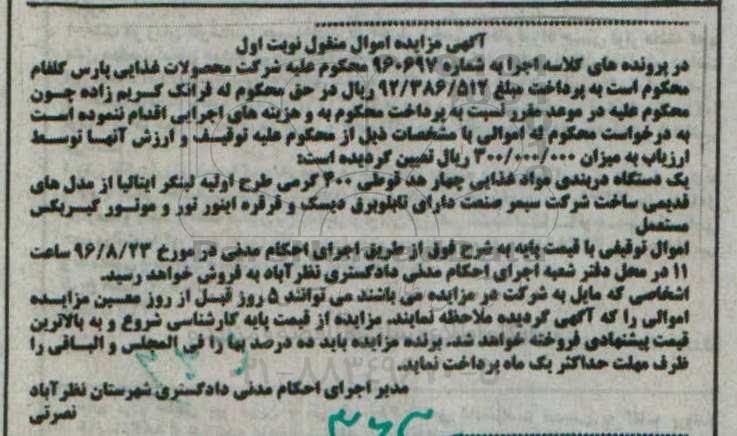 آگهی مزایده اموال منقول نوبت اول
در پرونده های کلاسه اجرا به شماره ۹۶۰۶۹۷ محکوم علیه شرکت محصولات غذایی پارس گلفام
محکوم است به پرداخت مبلغ ۹۲/۳۸۶/۵۱۲ ریال در حق محکوم له فرانک کریم زاده چون
محکوم علیه در موعد مقرر نسبت به پرداخت محکوم به و هزینه های اجرایی اقدام ننموده است
به درخواست محکوم له اموالی با مشخصات ذیل از محکوم علیه توقیف و ارزش آنها توسط
ارزیاب به میزان ۳۰۰/۰۰۰/۰۰۰ ریال تعیین گردیده است:
یک دستگاه دربندی مواد غذایی چهار هد قوطی ۴۰۰ گرمی طرح اولیه لینکر ایتالیا از مدل های
قدیمی ساخت شرکت سیمر صنعت دارای تابلوبرق دیسک و قرقره اینور تور و موتور گیربکس
مستعمل
اموال توقیفی با قیمت پایه به شرح فوق از طریق اجرای احکام مدنی در مورخ ۹۶/۸/۲۳ ساعت
۱۱ در محل دفتر شعبه اجرای احکام مدنی دادگستری نظرآباد به فروش خواهد رسید.
اشخاصی که مایل به شرکت در مزایده می باشند می توانند ۵ روز قبل از روز معین مزایده
اموالی را که آگهی گردیده ملاحظه نمایند. مزایده از قیمت پایه کارشناسی شروع و به بالاترین
قیمت پیشنهادی فروخته خواهد شد. برنده مزایده باید ده درصد بها را فی المجلس و الباقی را
ظرف مهلت حداکثر یک ماه پرداخت نماید.
مدیر اجرای احکام مدنی دادگستری شهرستان نظرآباد
نصرتی